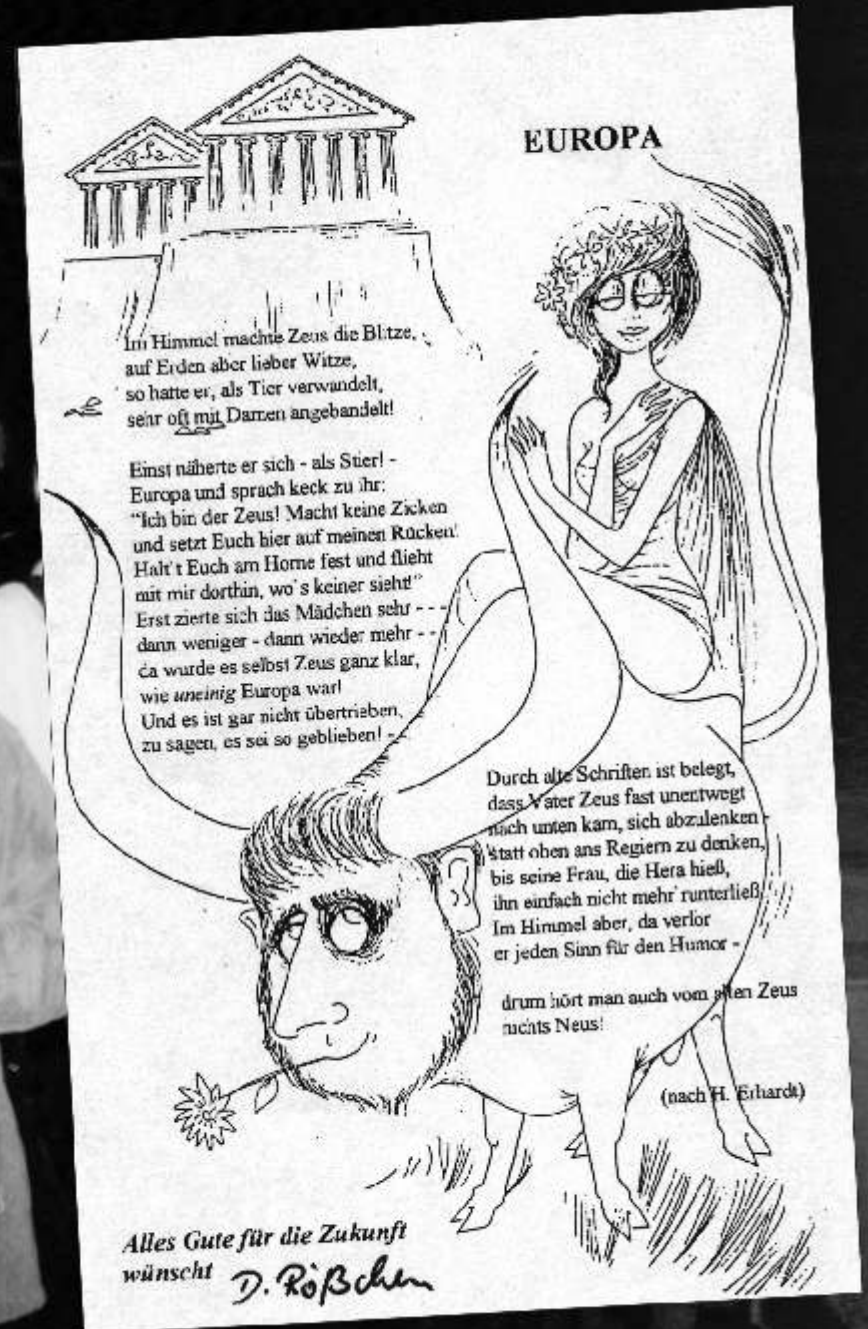 EUROPA
Im Himmel machte Zeus die Blitze,
auf Erden aber lieber Witze,
so hatte er, als Tier verwandelt,
sehr oft mit Damen angebandelt!
Einst näherte er sich - als Stier! -
Europa und sprach keck zu ihr:
"Ich bin der Zeus! Macht keine Zicken
und setzt Euch hier auf meinen Rücken!
Halt't Euch am Horne fest und flieht
mit mir dorthin, wo's keiner sieht!"
Erst zierte sich das Mädchen sehr - - -
dann weniger - dann wieder mehr - -
da wurde es selbst Zeus ganz klar,
wie uneinig Europa war!
Und es ist gar nicht übertrieben,
zu sagen, es sei so geblieben! -
Durch alte Schriften ist belegt,
dass Vater Zeus fast unentwegt
nach unten kam, sich abzulenken -
statt oben ans Regiern zu denken,
bis seine Frau, die Hera hieß,
ihn einfach nicht mehr runterließ.
Im Himmel aber, da verlor
er jeden Sinn für den Humor -
drum hört man auch vom alten Zeus
nichts Neus!
(nach H. Erhardt)
Alles Gute für die Zukunft
wünscht D. Rößchen